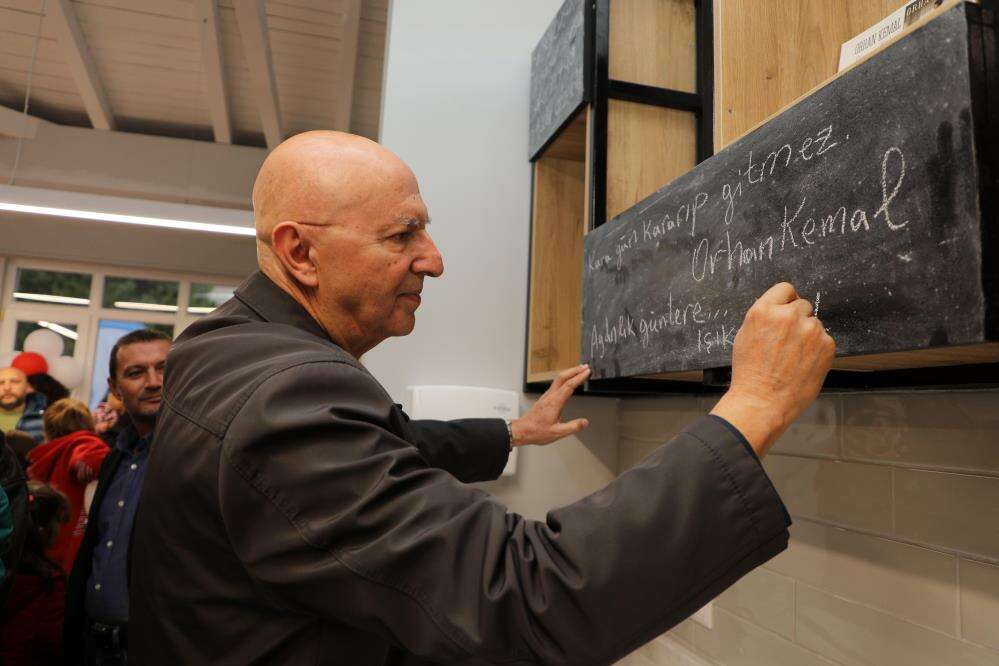 ORHAN KEMAL
Kara gün kararıp gitmez.
Orhan Kemal
Aydınlık günlere...
Işık